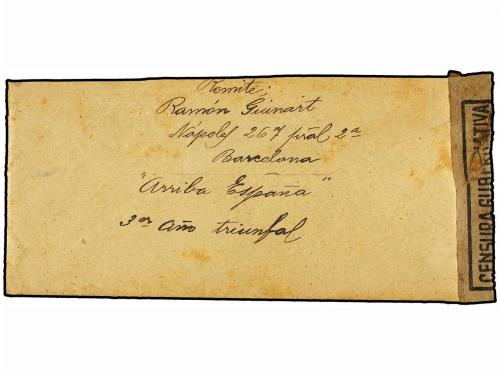 Remite:
Ramón Guinart
Nápoles 267 pral 2ª
Barcelona
"Arriba España"
3er año triunfal
CENSURA GUBERNATIVA